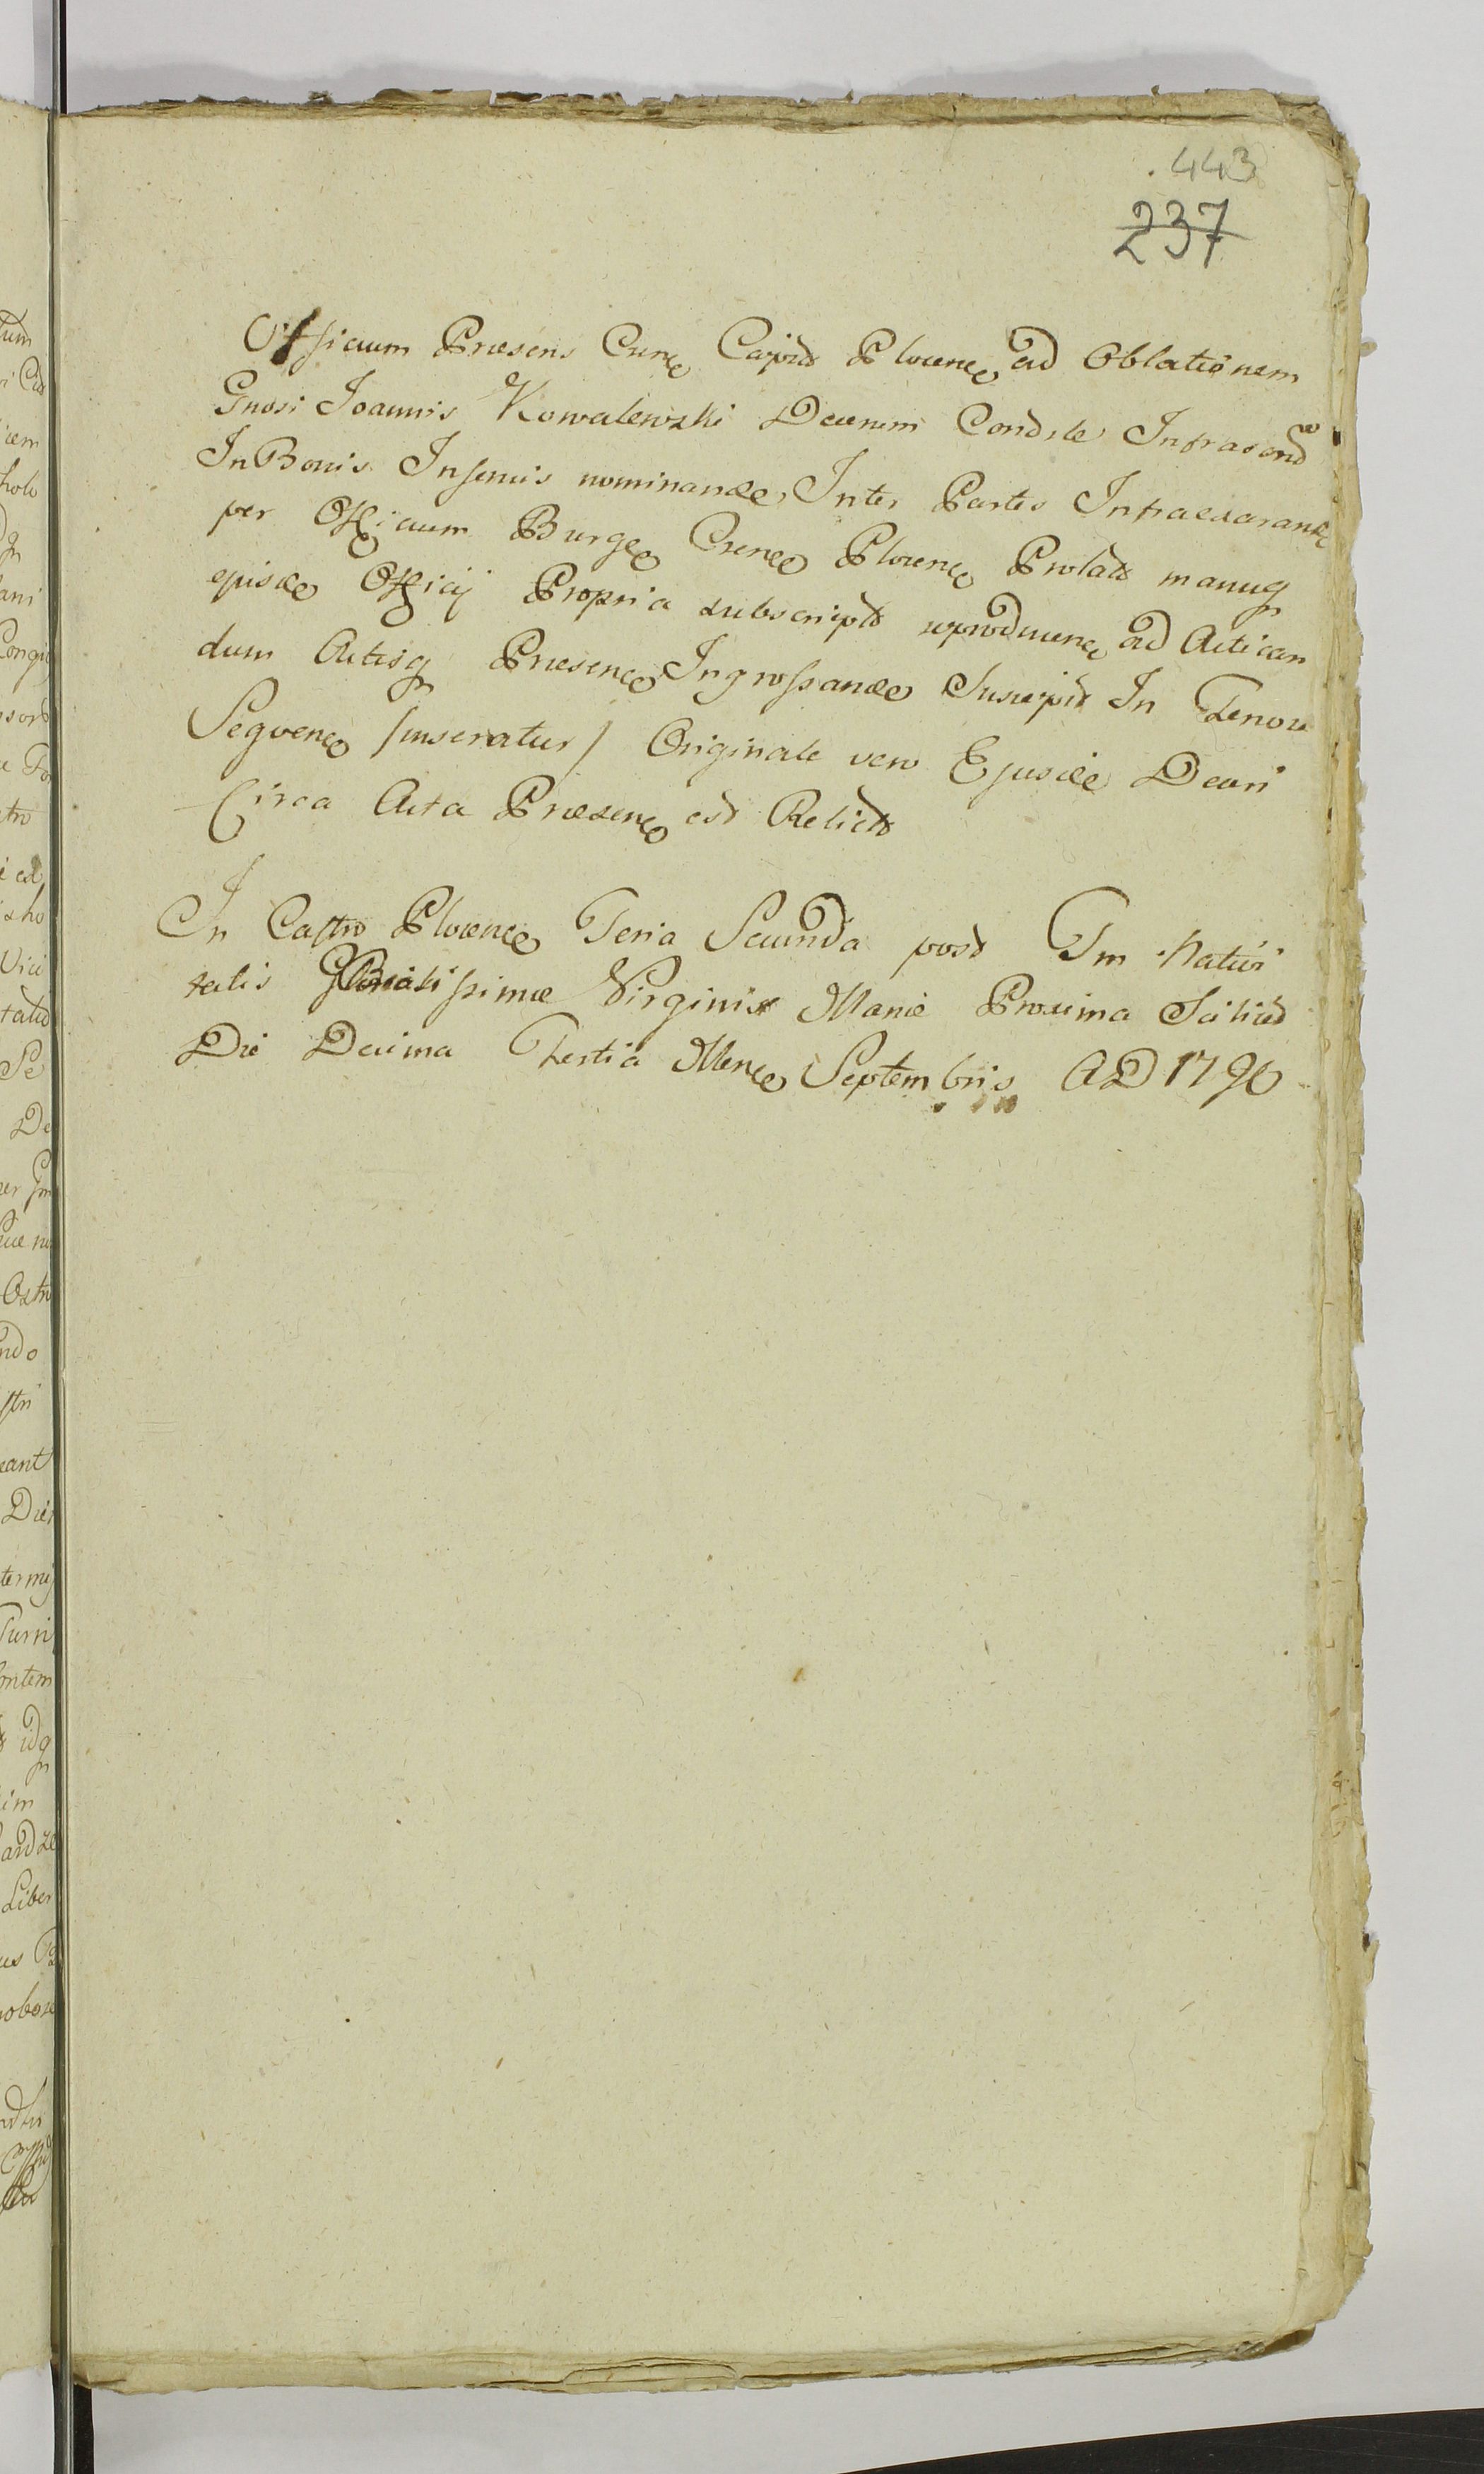 443
237
Officium Præsens Crrne Capit Plocene ad Oblationem
Gnosi Joannis Kowalewski Decrum Condsle Infrascrd
In Bonis Inferius nominande, Inter Partes Infraexarant
per Officium Burge Crene Plocene Prolat manuq
ejusde Officij Propria subscript reproducene ad Actican
dum Actisq Præsene Ingrossande Suscepit In Tenore
Sequene /: inseratur / Originale vero Ejusde Decri
Circa Acta Præsene est Relict
In Castro Plocene Feria Secunda post Fm Nativi
tatis Beatissimæ Virginis Mariæ Proxima Scilicet
Die Decima Tertia Mene Septembris AD 1790